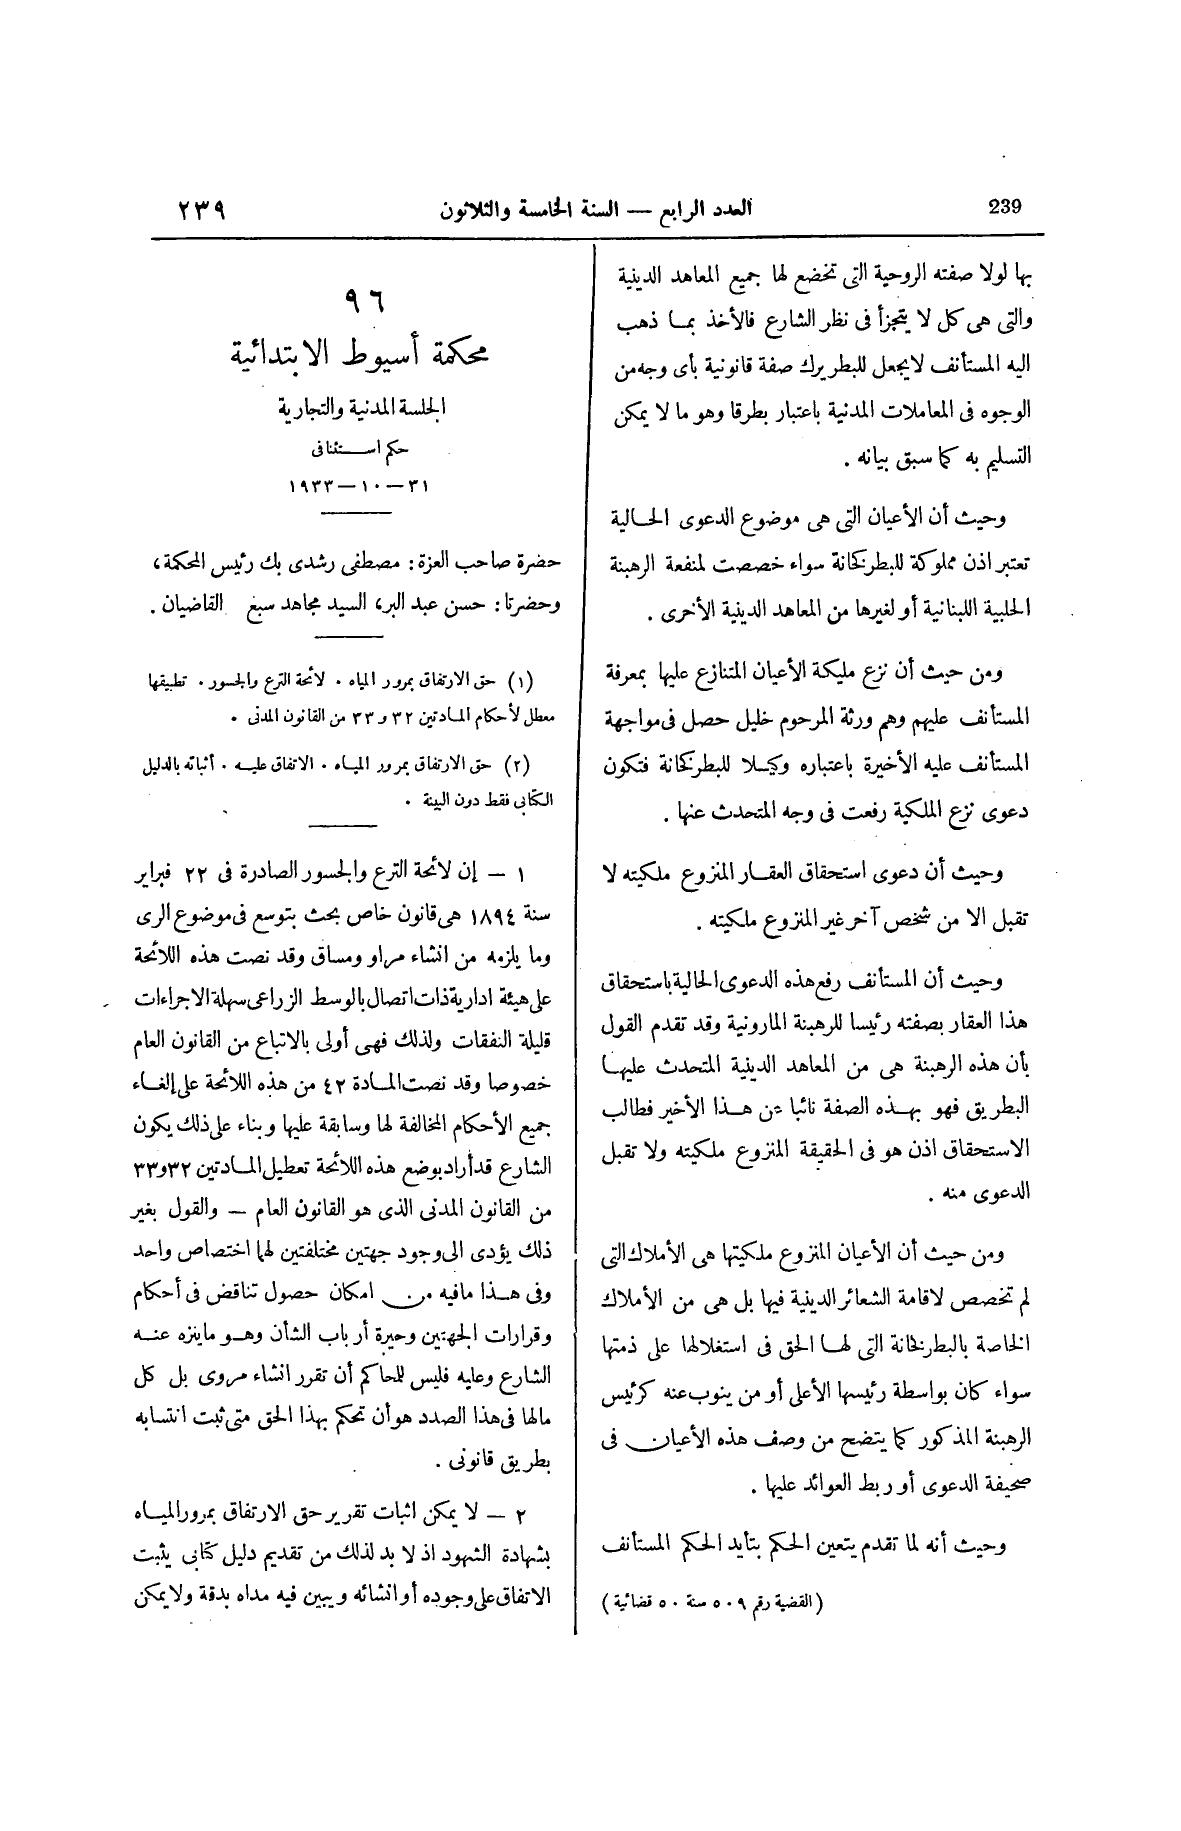 239
العدد الرابع — السنة الخامسة والثلاثون
٢٣٩
بها لولا صفته الروحية التى تخضع لها جميع المعاهد الدينية
والتى هى كل لا يتجزأ فى نظر الشارع فالأخذ بما ذهب
اليه المستأنف لا يجعل للبطريرك صفة قانونية بأى وجه من
الوجوه فى المعاملات المدنية باعتبار بطرقا وهو ما لا يمكن
التسليم به كما سبق بيانه .
وحيث أن الأعيان التى هى موضوع الدعوى الحالية
تعتبر اذن مملوكة للبطركخانة سواء خصصت لمنفعة الرهبنة
الحلبية اللبنانية أو لغيرها من المعاهد الدينية الأخرى .
ومن حيث أن نزع مليكة الأعيان المتنازع عليها بمعرفة
المستأنف عليهم وهم ورثة المرحوم خليل حصل فى مواجهة
المستأنف عليه الأخيرة باعتباره وكيلا للبطركخانة فتكون
دعوى نزع الملكية رفعت فى وجه المتحدث عنها .
وحيث أن دعوى استحقاق العقار المنزوع ملكيته لا
تقبل الا من شخص آخر غير المنزوع ملكيته .
وحيث أن المستأنف رفع هذه الدعوى الحالية باستحقاق
هذا العقار بصفته رئيسا للرهبنة المارونية وقد تقدم القول
بأن هذه الرهبنة هى من المعاهد الدينية المتحدث عليها
البطريق فهو بهذه الصفة نائبا عن هذا الأخير فطالب
الاستحقاق اذن هو فى الحقيقة المنزوع ملكيته ولا تقبل
الدعوى منه .
ومن حيث أن الأعيان المنزوع ملكيتها هى الأملاك التى
لم تخصص لاقامة الشعائر الدينية فيها بل هى من الأملاك
الخاصة بالبطرخانة التى لها الحق فى استغلالها على ذمتها
سواء كان بواسطة رئيسها الأعلى أو من ينوب عنه كرئيس
الرهبنة المذكور كما يتضح من وصف هذه الأعيان فى
صحيفة الدعوى أو ربط العوائد عليها .
وحيث أنه لما تقدم يتعين الحكم بتأيد الحكم المستأنف
( القضية رقم ٥٠٩ سنة ٥٠ قضائية )
٩٦
محكمة أسيوط الابتدائية
الجلسة المدنية والتجارية
حكم استئنافى
٣١ — ١٠ — ١٩٣٣
حضرة صاحب العزة : مصطفى رشدى بك رئيس المحكمة ،
وحضرتا : حسن عبد البر ، السيد مجاهد سبغ القاضيان .
(١) حق الارتفاق بمرور المياه . لائحة الترع والجسور . تطبيقها
معطل لأحكام المادتين ٣٢ و ٣٣ من القانون المدنى .
(٢) حق الارتفاق بمرور المياه . الاتفاق عليه . أثباته بالدليل
الكتابى فقط دون البينة .
١ — إن لائحة الترع والجسور الصادرة فى ٢٢ فبراير
سنة ١٨٩٤ هى قانون خاص بحث بتوسع فى موضوع الرى
وما يلزمه من انشاء مراو ومساق وقد نصت هذه اللائحة
على هيئة ادارية ذات اتصال بالوسط الزراعى سهلة الاجراءات
قليلة النفقات ولذلك فهى أولى بالاتباع من القانون العام
خصوصا وقد نصت المادة ٤٢ من هذه اللائحة على إلغاء
جميع الأحكام المخالفة لها وسابقة عليها وبناء على ذلك يكون
الشارع قد أراد بوضع هذه اللائحة تعطيل المادتين ٣٢ و ٣٣
من القانون المدنى الذى هو القانون العام — والقول بغير
ذلك يؤدى الى وجود جهتين مختلفتين لهما اختصاص واحد
وفى هذا مافيه من امكان حصول تناقض فى أحكام
وقرارات الجهتين وحيرة أرباب الشأن وهو ماينزه عنه
الشارع وعليه فليس للمحاكم أن تقرر انشاء مروى بل كل
مالها فى هذا الصدد هو أن تحكم بهذا الحق متى ثبت انتسابه
بطريق قانونى .
٢ — لا يمكن اثبات تقرير حق الارتفاق بمرور المياه
بشهادة الشهود اذ لا بد لذلك من تقديم دليل كتابى يثبت
الاتفاق على وجوده أو انشائه ويبين فيه مداه بدقة ولا يمكن